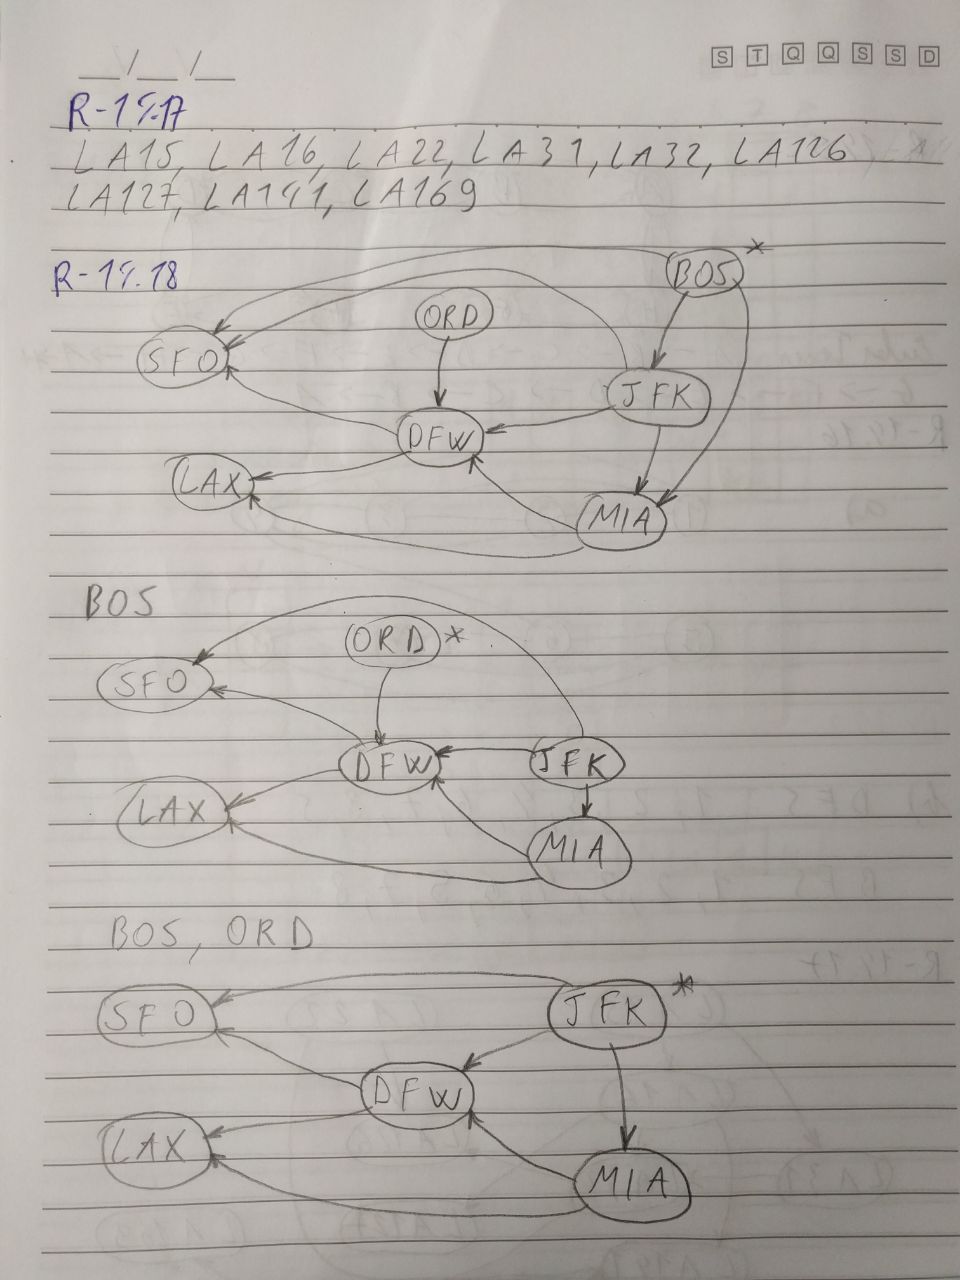 __/__/__ S T Q Q S S D
R-14.17
LA15, LA16, LA22, LA31, LA32, LA126
LA127, LA141, LA169
R-14.18
BOS *
ORD
SFO
JFK
DFW
LAX
MIA
BOS
ORD *
SFO
DFW
JFK
LAX
MIA
BOS, ORD
SFO
JFK *
DFW
LAX
MIA